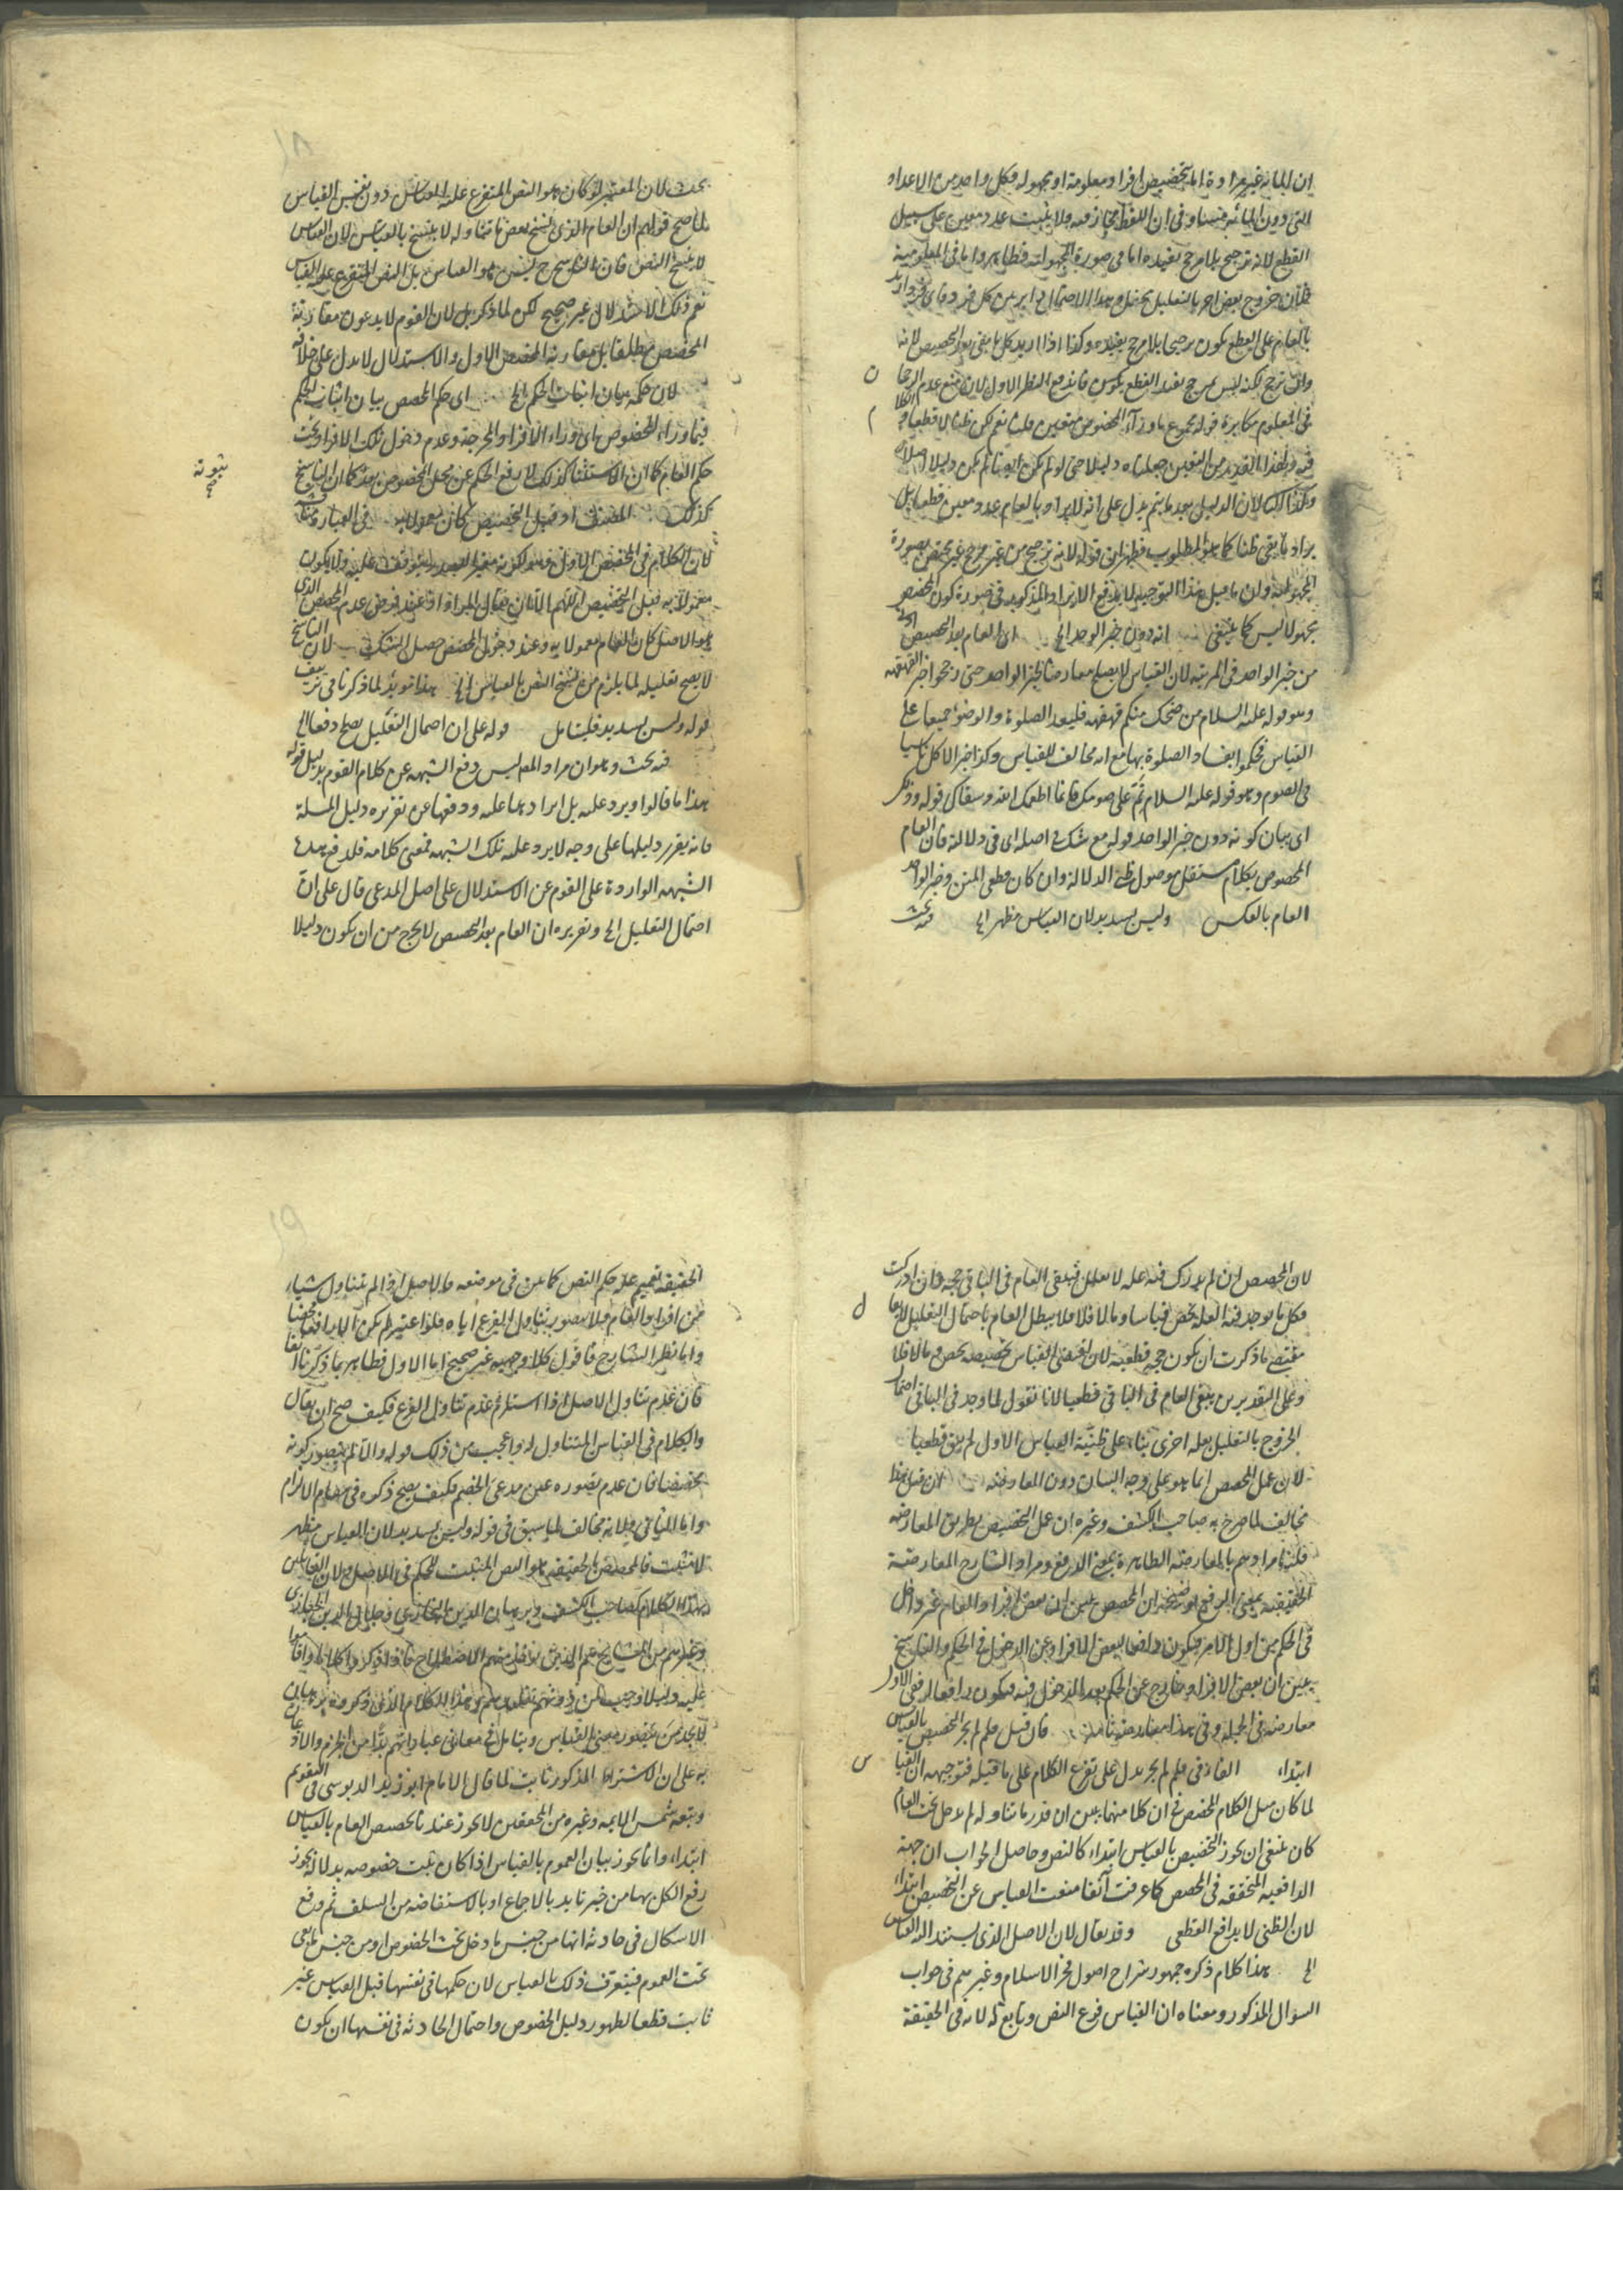 ان المائة غير مرادة اما بتخصيص افراد معلومة او مجهولة فكل واحد من الاعداد
التى دون المائة متساو فى ان اللفظ مجاز فيه ولا يثبت عدد معين على سبيل
القطع لانه ترجيح بلا مرجح يفيده اما فى صورة المجهولية فظاهر واما فى المعلومية
فلان خروج بعض اخر بالتعليل محتمل وهذا الاحتمال دائر بين كل فرد فاى فرد اريد
بالعام على القطع يكون ترجيحا بلا مرجح يفيده وكذا اذا اريد كل ما بقى بعد التخصيص لانه
وان ترجح لكنه ليس بمرجح يفيد القطع فاندفع النظر الاول لان منع عدم الرجحان
فى المعلوم مكابرة قوله مجموع ما وراء المخصوص متعين قلت نعم لكن ظنا لا قطعا
يراد ما بقى ظنا كما هو المطلوب فظهر ان قوله لانه ترجيح من غير مرجح غير مختص بصورة
المجهولية وان ما قيل هذا التوجيه لا يدفع الايراد المذكور فى صورة كون المخصص
مجهولا ليس كما ينبغى انه دون خبر الواحد الخ اى العام بعد التخصيص
من خبر الواحد فى المرتبة لان القياس لا يصلح معارضا لخبر الواحد حتى رجحوا خبر القهقهة
وهو قوله عليه السلام من ضحك منكم قهقهة فليعد الصلوة والوضوء جميعا على
القياس فحكموا بفساد الصلوة بها مع انه مخالف للقياس وكذا خبر الاكل ناسيا
فى الصوم وهو قوله عليه السلام تم على صومك فانما اطعمك الله وسقاك قوله وذلك
اى بيان كونه دون خبر الواحد قوله مع شك فى اصله اى فى دلالته فان العام
المخصوص بكلام مستقل موصول ظنى الدلالة وان كان قطعى المتن وخبر الواحد
العام بالعكس وليس بسديد لان القياس مظهر الخ فيه بحث
بحث لان المعتبر لو كان هو النص المتفرع عليه القياس دون نفس القياس
لما صح قولهم ان العام الذى نسخ بعض ما تناوله لا ينسخ بالقياس لان القياس
لا ينسخ النص فان الناسخ ح ليس هو القياس بل النص المتفرع عليه القياس
نعم ذلك الاستدلال غير صحيح لكن لما ذكر بل لان القوم لا يدعون مقارنة
المخصص مطلقا بل مقارنة المخصص الاول والاستدلال لا يدل على خلافه
لان حكمه بيان اثبات الحكم الخ اى حكم المخصص بيان اثبات الحكم
فيما وراء المخصوص اى وراء الافراد المخرجة وعدم دخول تلك الافراد تحت
حكم العام كما ان الاستثناء كذلك لا رفع الحكم عن محل المخصوص بعد ثبوته كما ان الناسخ
كذلك
لان الكلام فى المخصص الاول
هو الاصل كان العام معمولا به وعند دخول المخصص حصل الشك لان الناسخ
لا يصح تعليله لما يلزم من نسخ النص بالقياس الخ هذا مؤيد لما ذكرنا فى تزييف
قوله وليس بسديد فليتامل قوله على ان احتمال التعليل يصلح دفعا الخ
فيه بحث وهو ان مراد المص ليس دفع الشبهة عن كلام القوم بدليل قوله
هذا ما قالوا ويرد عليه بل ايراد ها عليه ودفعها عن تقريره دليل المسئلة
فانه يقرر دليلها على وجه لا يرد عليه تلك الشبهة فمعنى كلامه فلدفع هذه
الشبهة الواردة على القوم عن الاستدلال على اصل المدعى قال على ان
احتمال التعليل الخ وتقريره ان العام بعد التخصيص لا يخرج من ان يكون دليلا
لان المخصص ان لم يدرك فيه علة لا يعلل فيبقى العام فى الباقى حجة وان ادركت
فكل ما يوجد فيه العلة يخص قياسا وما لا فلا فلا يبطل العام باحتمال التعليل
مقتضى ما ذكرت ان يكون حجة قطعية لان ما اقتضى القياس تخصيصه يخص وما لا فلا
وعلى التقديرين يبقى العام فى الباقى قطعيا لانا نقول لما وجد فى الباقى احتمال
الخروج بالتعليل بعلة اخرى بناء على ظنية القياس الاول لم يبق قطعيا
لان عمل المخصص انما هو على وجه البيان دون المعارضة فان قيل هذا
مخالف لما صرح به صاحب الكشف وغيره ان عمل المخصص بطريق المعارضة
قلنا مرادهم بالمعارضة الظاهرة بمعنى الدفع ومراد الشارح المعارضة
الحقيقية بمعنى الرفع توضيحه ان المخصص يبين ان بعض افراد العام غير داخل
فى الحكم من اول الامر فيكون دافعا لبعض الافراد عن الدخول فى الحكم والناسخ
يبين ان بعض الافراد خارج عن الحكم بعد الدخول فيه فيكون رافعا ففى الاول
معارضة فى الجملة وفى هذا معارضة تامة فان قيل فلم لم يجز التخصيص بالقياس
ابتداء الفاء فى فلم لم يجز يدل على تفرع الكلام على ما قبله فتوجيهه ان القياس
لما كان مثل الكلام المخصص فى ان كلا منهما يبين ان قدر ما تناوله لم يدخل تحت العام
كان ينبغى ان يجوز التخصيص بالقياس ابتداء كالنص وحاصل الجواب ان جهة
الدافعية المتحققة فى المخصص كما عرفت آنفا منعت القياس عن التخصيص ابتداء
لان الظنى لا يدافع القطعى وقد يقال لان الاصل الذى يستند اليه القياس
الخ هذا كلام ذكره جمهور شراح اصول فخر الاسلام وغيرهم فى جواب
السؤال المذكور ومعناه ان القياس فرع النص وتابع له لانه فى الحقيقة
الحقيقة تعميم علة حكم النص كما بين فى موضعه والاصل اذا لم يتناول شيئا
من افراد العام فلا يتصور تناول الفرع اياه فلو اعتبر لم يكن الا دافعا محضا
واما نظر الشارح فاقول كلا وجهيه غير صحيح اما الاول فظاهر بما ذكرنا آنفا
فان عدم تناول الاصل اذا استلزم عدم تناول الفرع فكيف صح ان يقال
والكلام فى القياس المتناول له واعجب من ذلك قوله والا لم يتصور كونه
مخصصا فان عدم تصوره عين مدعى الخصم فكيف يصح ذكره فى مقام الالزام
واما الثانى فلانه مخالف لما سبق فى قوله وليس بسديد لان القياس مظهر
لا مثبت فالمخصص بالحقيقة هو النص المثبت للحكم فى الاصل ولان القائلين
بهذا الكلام كصاحب الكشف وبرهان الدين البخارى وجلال الدين الخبازى
به على ان الاشتراط المذكور ثابت لما قال الامام ابو زيد الدبوسى فى التقويم
وتبعه شمس الايمة وغيره من المحققين لا يجوز عندنا تخصيص العام بالقياس
ابتداء وانما يجوز بيان العموم بالقياس اذا كان ثبت خصوصه بدلالة يجوز
رفع الكل بها من خبر تايد بالاجماع او بالاستفاضة من السلف ثم وقع
الاشكال فى حادثة انها من جنس ما دخل تحت الخصوص او من جنس ما بقى
تحت العموم فيتعرف ذلك بالقياس لان حكمها فى نفسها قبل القياس غير
ثابت قطعا لظهور دليل الخصوص واحتمال الحادثة فى نفسها ان يكون